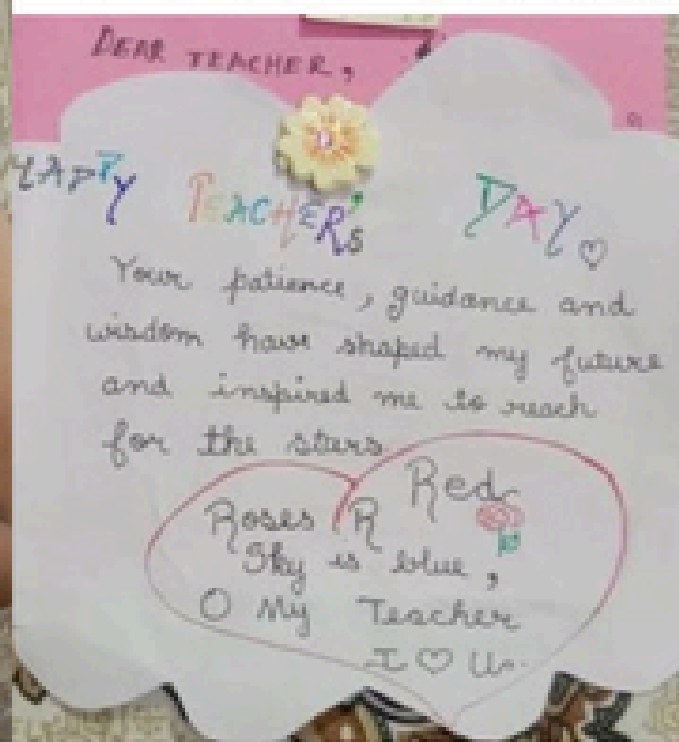 DEAR TEACHER,
HAPPY TEACHER'S DAY
Your patience, guidance and
wisdom have shaped my future
and inspired me to reach
for the stars
Roses R Red
Sky is blue,
O My Teacher
I ♡ U